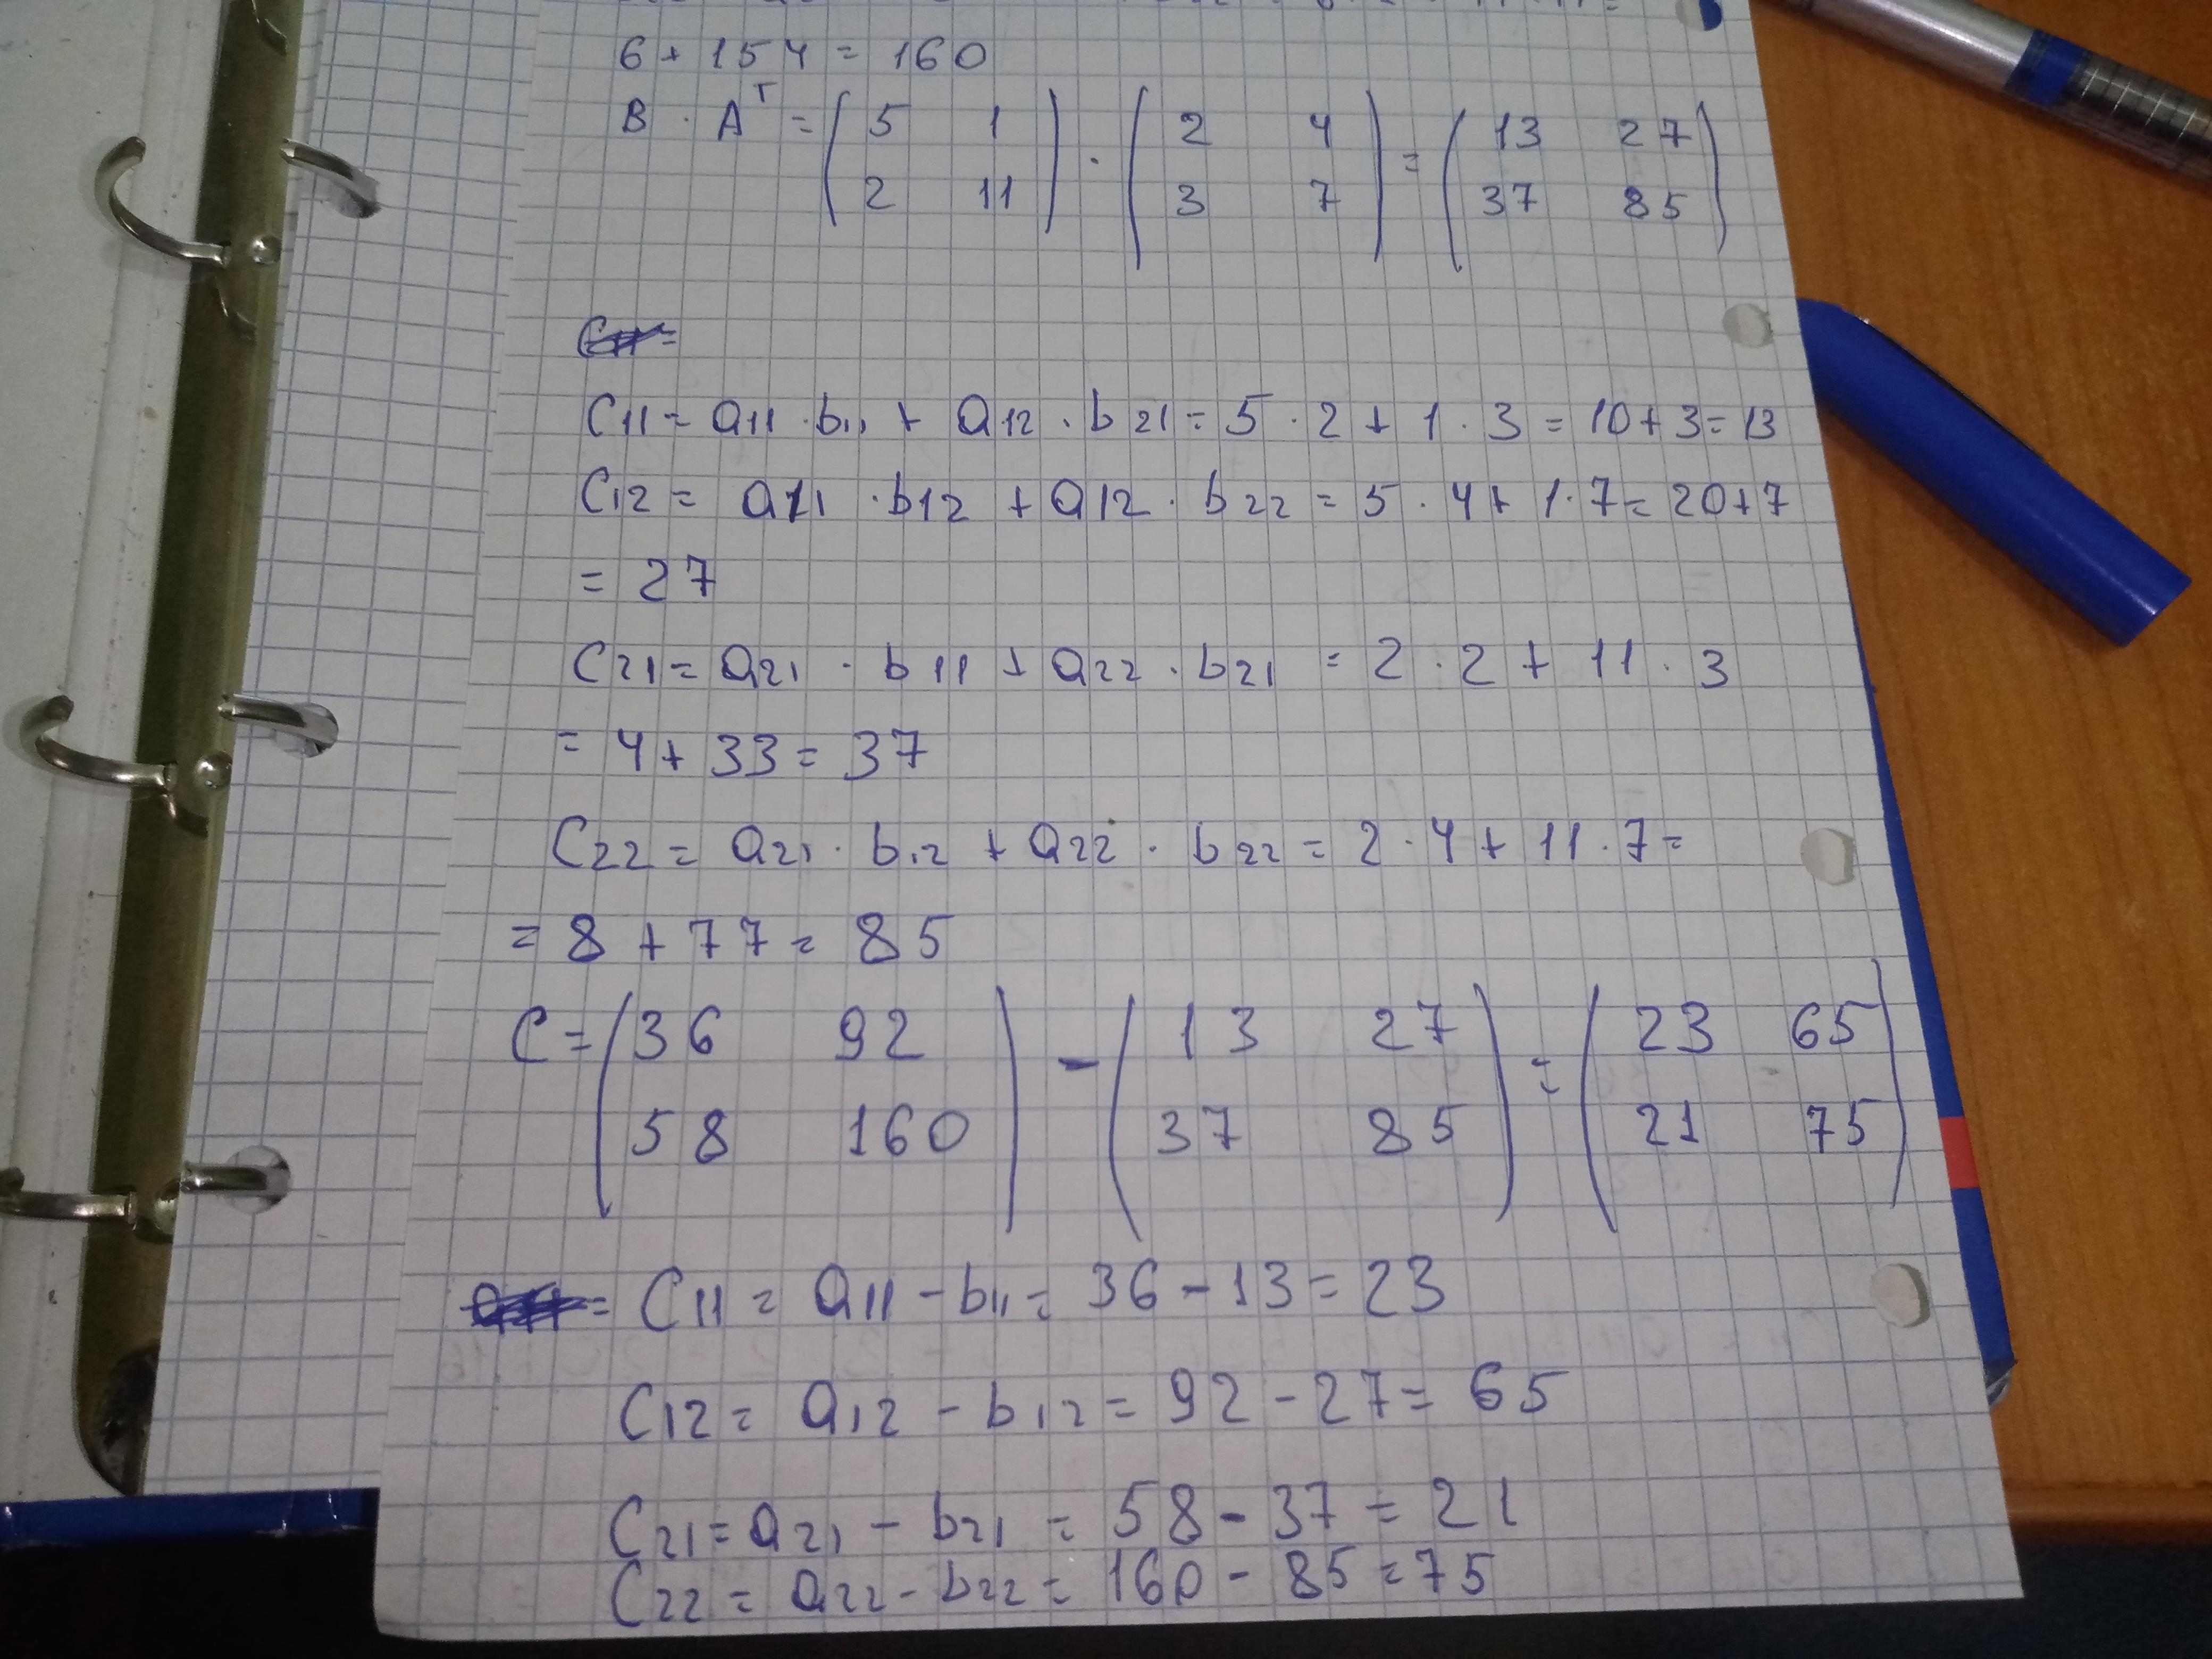 6 + 154 = 160
B · Aᵀ = (5 1) · (2 4) = (13 27)
(2 11) (3 7) (37 85)
C11 = a11 · b11 + a12 · b21 = 5 · 2 + 1 · 3 = 10 + 3 = 13
C12 = a11 · b12 + a12 · b22 = 5 · 4 + 1 · 7 = 20 + 7
= 27
C21 = a21 · b11 + a22 · b21 = 2 · 2 + 11 · 3
= 4 + 33 = 37
C22 = a21 · b12 + a22 · b22 = 2 · 4 + 11 · 7 =
= 8 + 77 = 85
C = (36 92) - (13 27) = (23 65)
(58 160) (37 85) (21 75)
= C11 = a11 - b11 = 36 - 13 = 23
C12 = a12 - b12 = 92 - 27 = 65
C21 = a21 - b21 = 58 - 37 = 21
C22 = a22 - b22 = 160 - 85 = 75